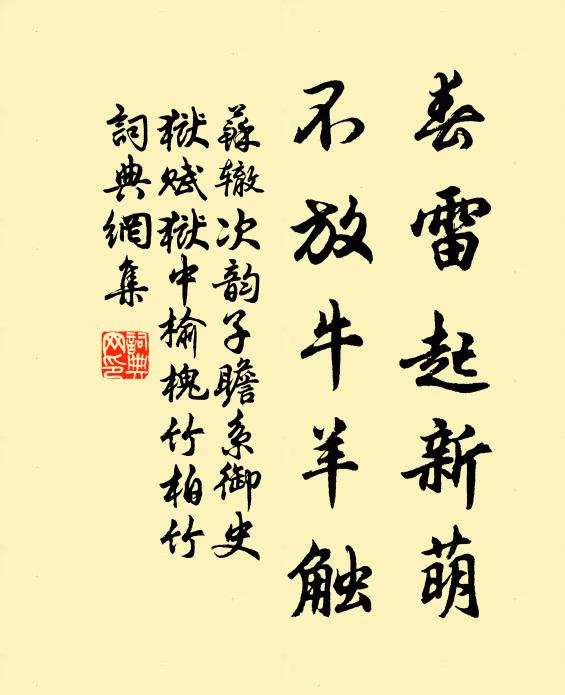 春雷起新萌
不放牛羊触
蘇辙次韵子瞻系御史
狱赋狱中榆槐竹柏竹
詞典網集
詞典
网印